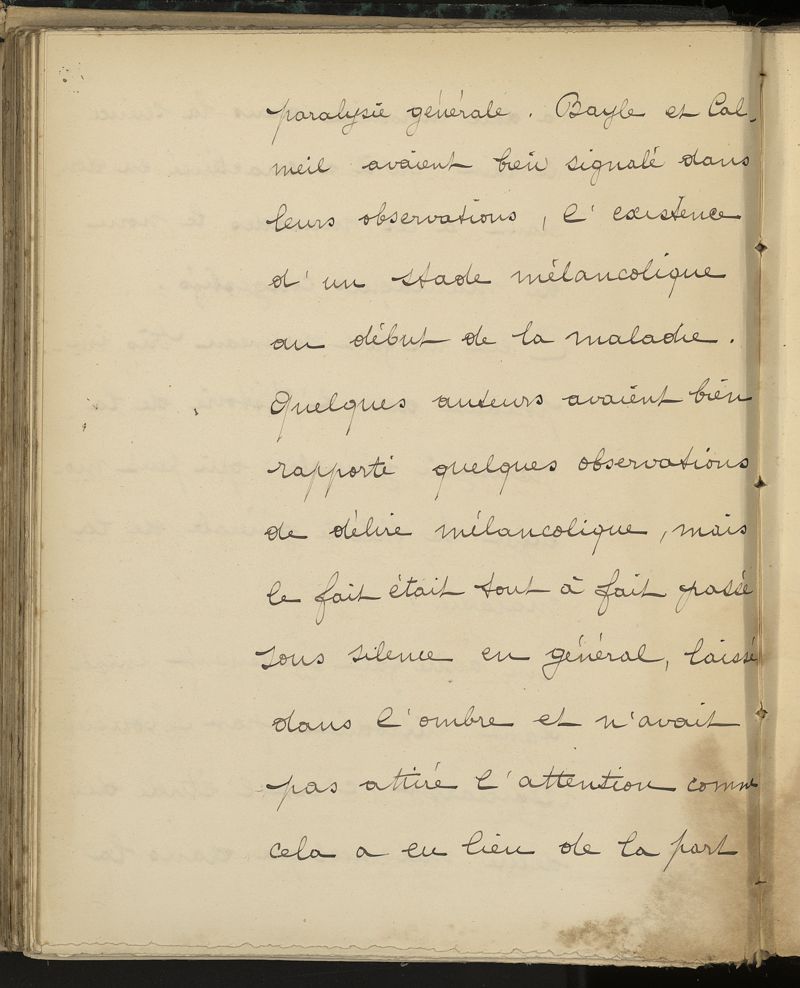 paralysie générale. Bayle et Cal-
meil avaient bien signalé dans
leurs observations, l'existence
d'un stade mélancolique
au début de la maladie.
Quelques auteurs avaient bien
rapporté quelques observations
de délire mélancolique, mais
le fait était tout à fait passé
sous silence en général, laissé
dans l'ombre et n'avait
pas attiré l'attention comme
cela a eu lieu de la part